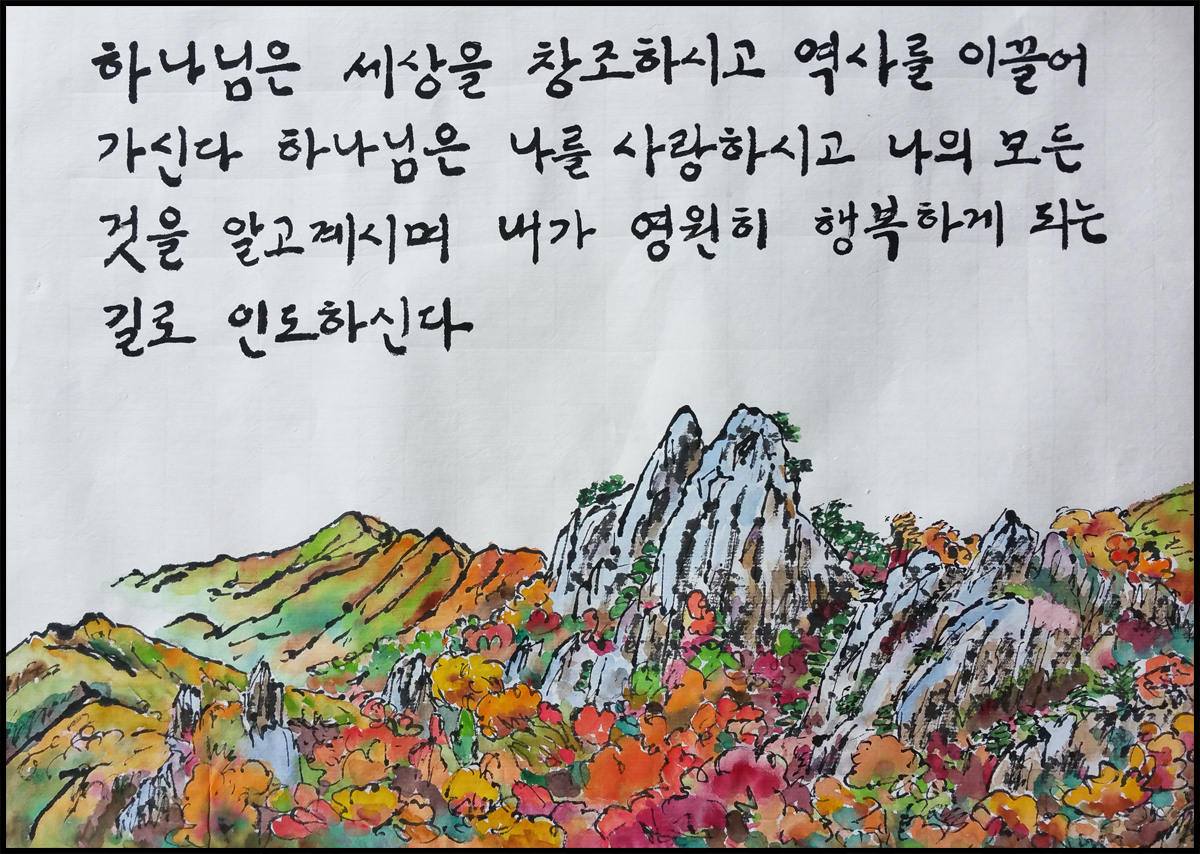 하나님은 세상을 창조하시고 역사를 이끌어
가신다 하나님은 나를 사랑하시고 나의 모든
것을 알고계시며 내가 영원히 행복하게 되는
길로 인도하신다